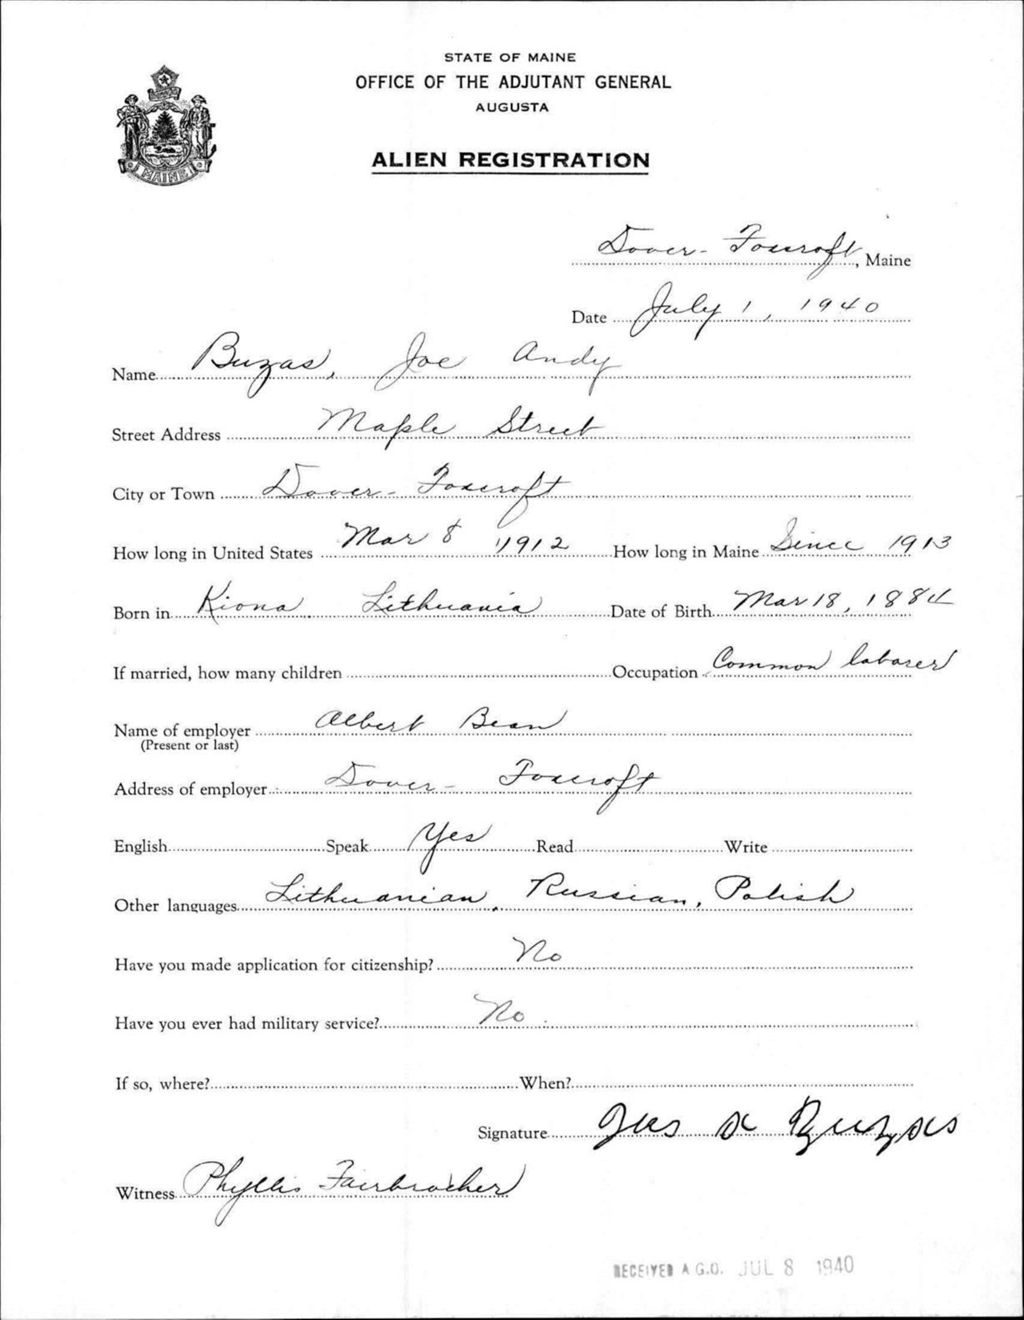 STATE OF MAINE
OFFICE OF THE ADJUTANT GENERAL
AUGUSTA
ALIEN REGISTRATION
MAINE
Dover-Foxcroft, Maine
Date July 1, 1940
Name Buzas, Joe Andy
Street Address Maple Street
City or Town Dover-Foxcroft
How long in United States Mar 8 1912 How long in Maine Since 1913
Born in Kiona, Lithuania Date of Birth Mar 18, 1884
If married, how many children Occupation Common laborer
Name of employer Albert Bean
(Present or last)
Address of employer Dover-Foxcroft
English Speak Yes Read Write
Other languages Lithuanian, Russian, Polish
Have you made application for citizenship? No
Have you ever had military service? No
If so, where? When?
Signature Buzas
Witness Phyllis Fairbrother
RECEIVED A.G.O. JUL 8 1940